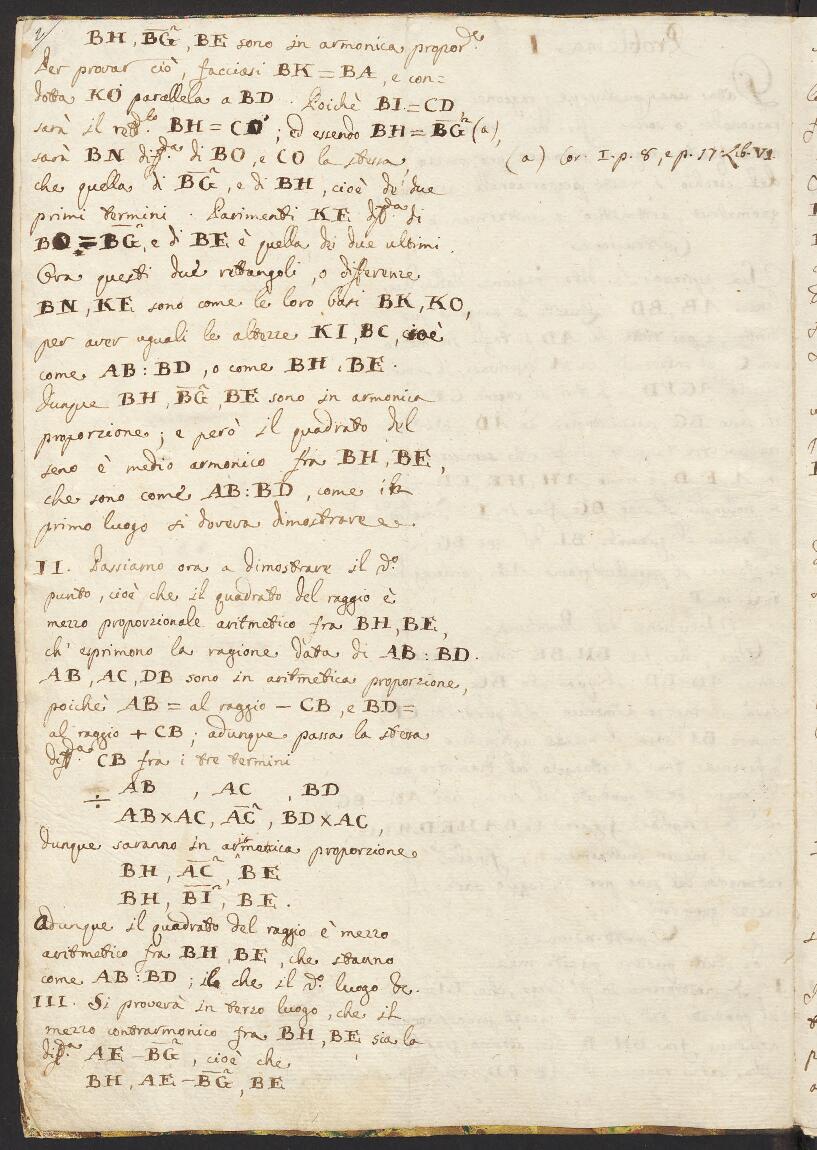 2/
BH, BG^q, BE sono in armonica propor.^e
Per provar ciò, facciasi BK = BA, e con=
dotta KO parallela a BD. Poichè BI = CD
sarà il rett.^lo BH = CO ; ed essendo BH = BG^q (a),
sarà BN diff.^a di BO, e CO la stessa
(a) Cor. I. p. 8, e p. 17. Lib. VI.
che quella di BG^q, e di BH, cioè de' due
primi termini. Parimenti KE diff.^da di
BO = BG^q, e di BE è quella dei due ultimi.
Ora questi due rettangoli, o differenze
BN, KE sono come le loro basi BK, KO,
per aver uguali le altezze KI, BC, cioè
come AB : BD, o come BH, BE.
Dunque BH, BG^q, BE sono in armonica
proporzione; e però il quadrato del
seno è medio armonico fra BH, BE,
che sono come AB : BD, come in
primo luogo si doveva dimostrare.
II. Passiamo ora a dimostrare il 2.^o
punto, cioè che il quadrato del raggio è
mezzo proporzionale aritmetico fra BH, BE,
ch' esprimono la ragione data di AB : BD.
AB, AC, DB sono in aritmetica proporzione,
poichè AB = al raggio − CB, e BD =
al raggio + CB; adunque passa la stessa
diff.^a CB fra i tre termini
÷ AB , AC , BD
AB×AC, AC^q, BD×AC,
dunque saranno in aritmetica proporzione
BH, AC^q, BE
BH, BI^q, BE.
Adunque il quadrato del raggio è mezzo
aritmetico fra BH, BE, che stanno
come AB : BD ; il che il 2.^o luogo &c.
III. Si proverà in terzo luogo, che il
mezzo contrarmonico fra BH, BE sia la
diff.^a AE − BG^q, cioè che
BH, AE − BG^q, BE